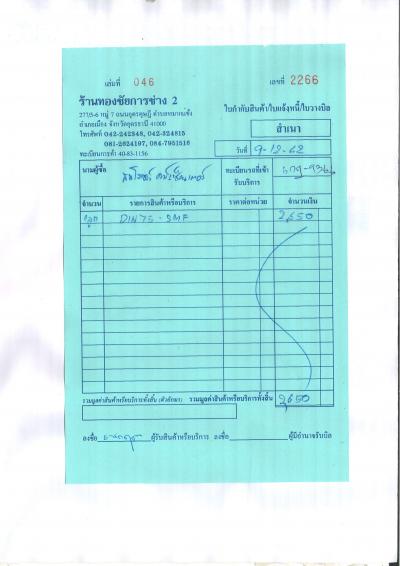 เล่มที่ 046 เลขที่ 2266
ร้านทองชัยการช่าง 2
277/5-6 หมู่ 7 ถนนอุดรดุษฎี ตำบลหมากแข้ง
อำเภอเมือง จังหวัดอุดรธานี 41000
โทรศัพท์ 042-242348, 042-324815
081-2624197, 084-7951516
ทะเบียนการค้า 40-83-1156
ใบกำกับสินค้า/ใบแจ้งหนี้/ใบวางบิล
สำเนา
วันที่ 9-12-62
นามผู้ซื้อ
ทะเบียนรถที่เข้ารับบริการ
จำนวน รายการสินค้าหรือบริการ ราคาต่อหน่วย จำนวนเงิน
DIN 75 - SMF 2,650
รวมมูลค่าสินค้าหรือบริการทั้งสิ้น (ตัวอักษร) รวมมูลค่าสินค้าหรือบริการทั้งสิ้น 2,650
ลงชื่อ ผู้รับสินค้าหรือบริการ ลงชื่อ ผู้มีอำนาจรับบิล